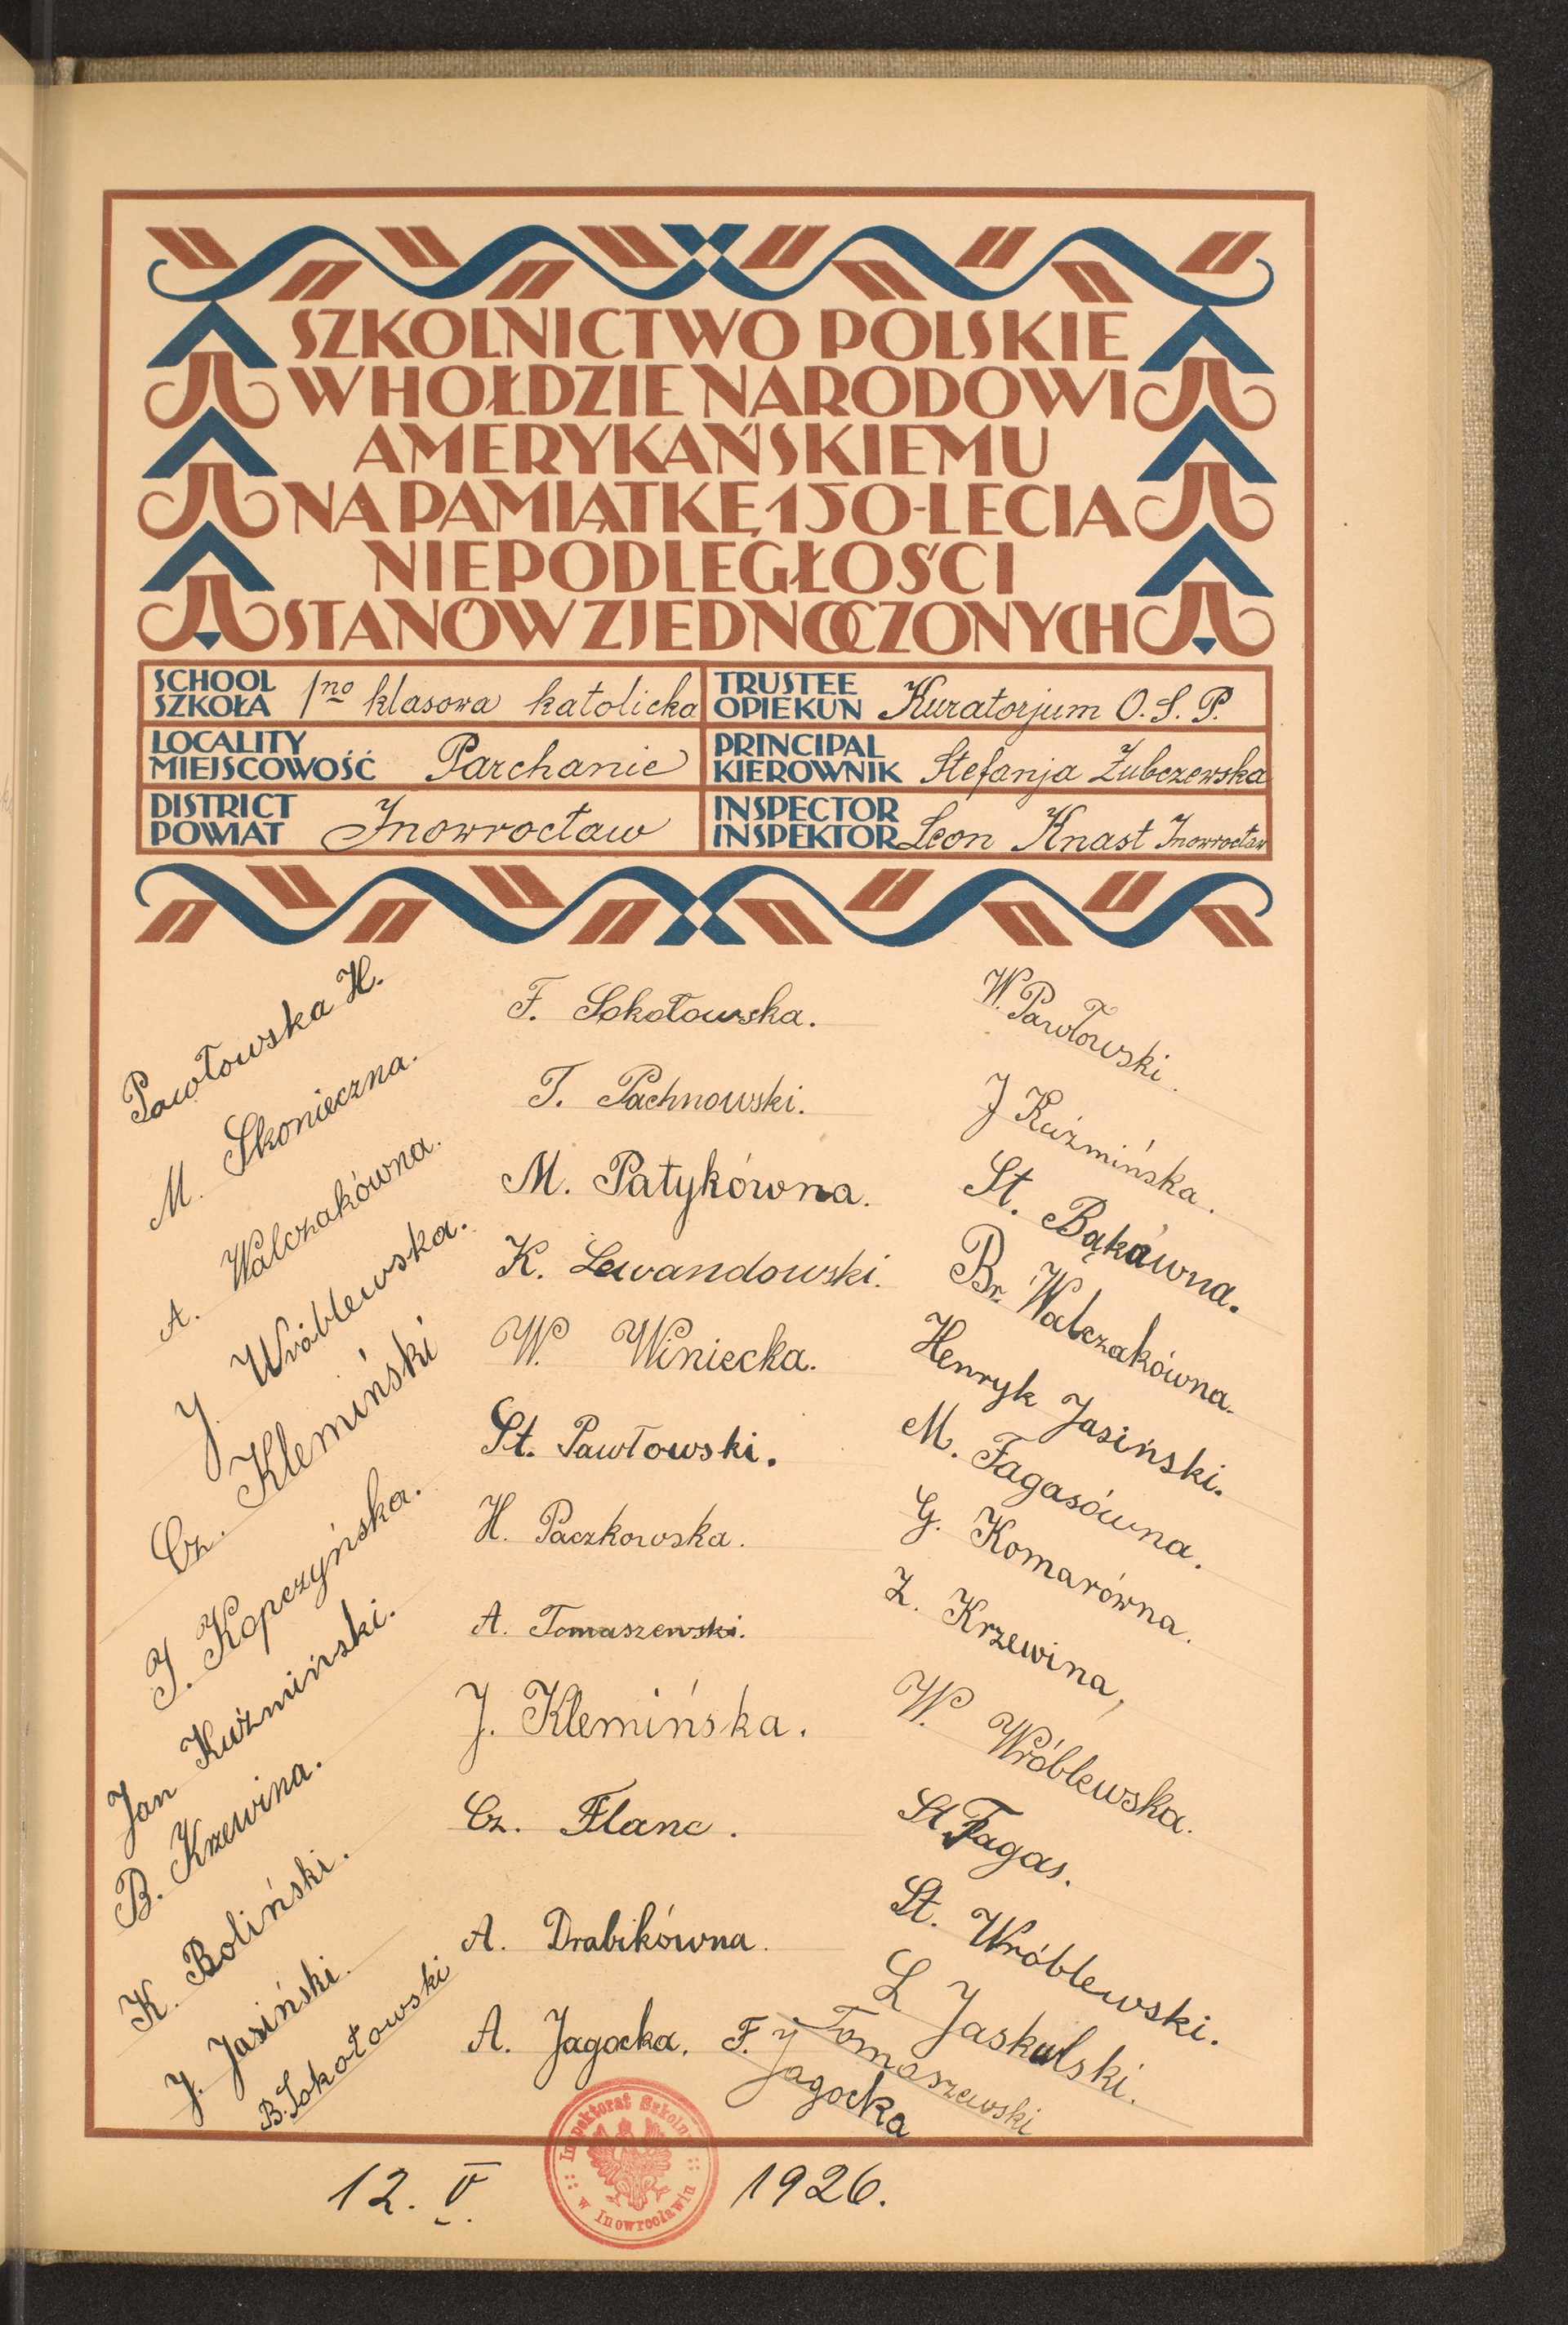 SZKOLNICTWO POLSKIE
W HOŁDZIE NARODOWI
AMERYKAŃSKIEMU
NA PAMIĄTKĘ 150-LECIA
NIEPODLEGŁOŚCI
STANÓW ZJEDNOCZONYCH
SCHOOL
SZKOŁA 1no klasowa katolicka
TRUSTEE
OPIEKUN Kuratorjum O.S.P.
LOCALITY
MIEJSCOWOŚĆ Parchanie
PRINCIPAL
KIEROWNIK Stefanja Zubczewska
DISTRICT
POWIAT Inowrocław
INSPECTOR
INSPEKTOR Leon Knast Inowrocław
Pawłowska H.
M. Skonieczna.
A. Walczakówna.
J Wróblewska.
Cz. Klemiński
J. Kopczyńska.
Jan Kuźmiński.
B. Krzewina.
K. Boliński.
J. Jasiński.
B. Sokołowski
F. Sokołowska.
T. Pachnowski.
M. Patykówna.
K. Lewandowski.
W. Winiecka.
St. Pawłowski.
H. Paczkowska.
A. Tomaszewski.
J. Klemińska.
Cz. Flanc.
A. Drabikówna.
A. Jagocka.
W. Pawłowski.
J Kuźmińska.
St. Bąkówna.
Br. Walczakówna.
Henryk Jasiński.
M. Fagasówna.
G. Komarówna.
Z. Krzewina,
W. Wróblewska.
St. Fagas.
St. Wróblewski.
L Jaskulski.
F. Tomaszewski
J Jagocka
Inspektorat Szkolny
w Inowrocławiu
12. V. 1926.